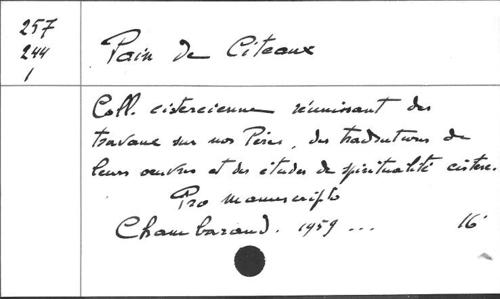 257
244
1
Pain de Citeaux
Coll. cistercienne réunissant des
travaux sur nos Pères, des traductions de
leurs oeuvres et des études de spiritualité cisterc.
Pro manuscripto
Chambarand. 1959 ... 16°